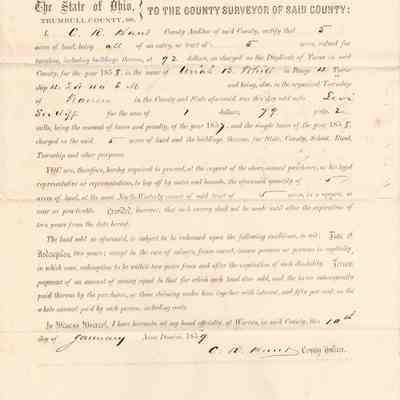 The State of Ohio,
TRUMBULL COUNTY, SS.
TO THE COUNTY SURVEYOR OF SAID COUNTY:
I, C. R. Hunt County Auditor of said County, certify that 5
acres of land, being all of an entry, or tract of 5 acres, returned for
taxation, including buildings thereon, at 92 dollars, as charged on the Duplicate of Taxes in said
County, for the year 1858, in the name of in Range
and being, also, in the organized Township
of Warren in the County and State aforesaid, was this day sold unto Levi
for the sum of 1 dollars, 79 cents, 2
mills, being the amount of taxes and penalty, of the year 1857, and the simple taxes of the year 1858,
charged on the said 5 acres of land and the buildings thereon, for State, County, School, Road,
Township and other purposes.
YOU are, therefore, hereby required to proceed, at the expense of the above-named purchaser, or his legal
representative or representatives, to lay off by metes and bounds, the aforesaid quantity of 5
acres of land, at the most North-Westerly corner of said tract of 5 acres, in a square, as
near as practicable. Provided, however, that such survey shall not be made until after the expiration of
two years from the date hereof.
The land sold as aforesaid, is subject to be redeemed upon the following conditions, to wit: Time of
Redemption, two years; except in the case of infants, femes covert, insane persons or persons in captivity,
in which case, redemption to be within two years from and after the expiration of such disability. Terms,
payment of an amount of money equal to that for which such land was sold, and the taxes subsequently
paid thereon by the purchaser, or those claiming under him, together with interest, and fifty per cent. on the
whole amount paid by such person, including costs.
In Witness Whereof, I have hereunto set my hand officially, at Warren, in said County, this 10th
day of January Anno Domini, 1859
C. R. Hunt County Auditor.